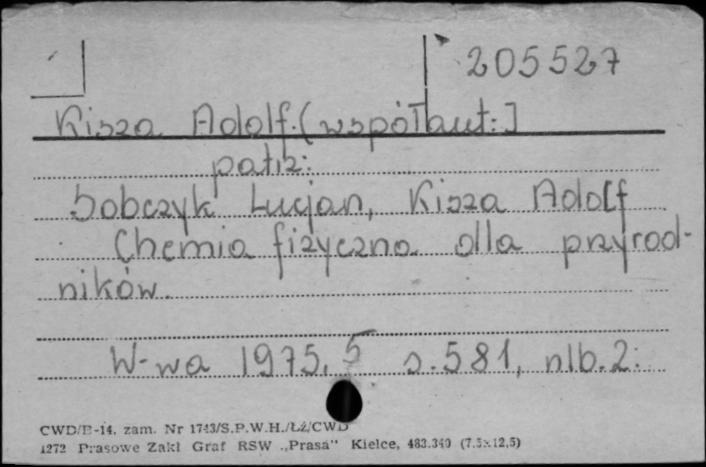 205527
Kisza Adolf. (współaut:]
patrz:
Sobczyk Lucjan, Kisza Adolf
Chemia fizyczna dla przyrod-
ników.
W-wa 1975. 5 s. 581, nlb. 2.
CWD/B-14. zam. Nr 1743/S.P.W.H./ŁŹ/CWD
1272 Prasowe Zakł Graf RSW „Prasa" Kielce, 483.340 (7.5×12,5)